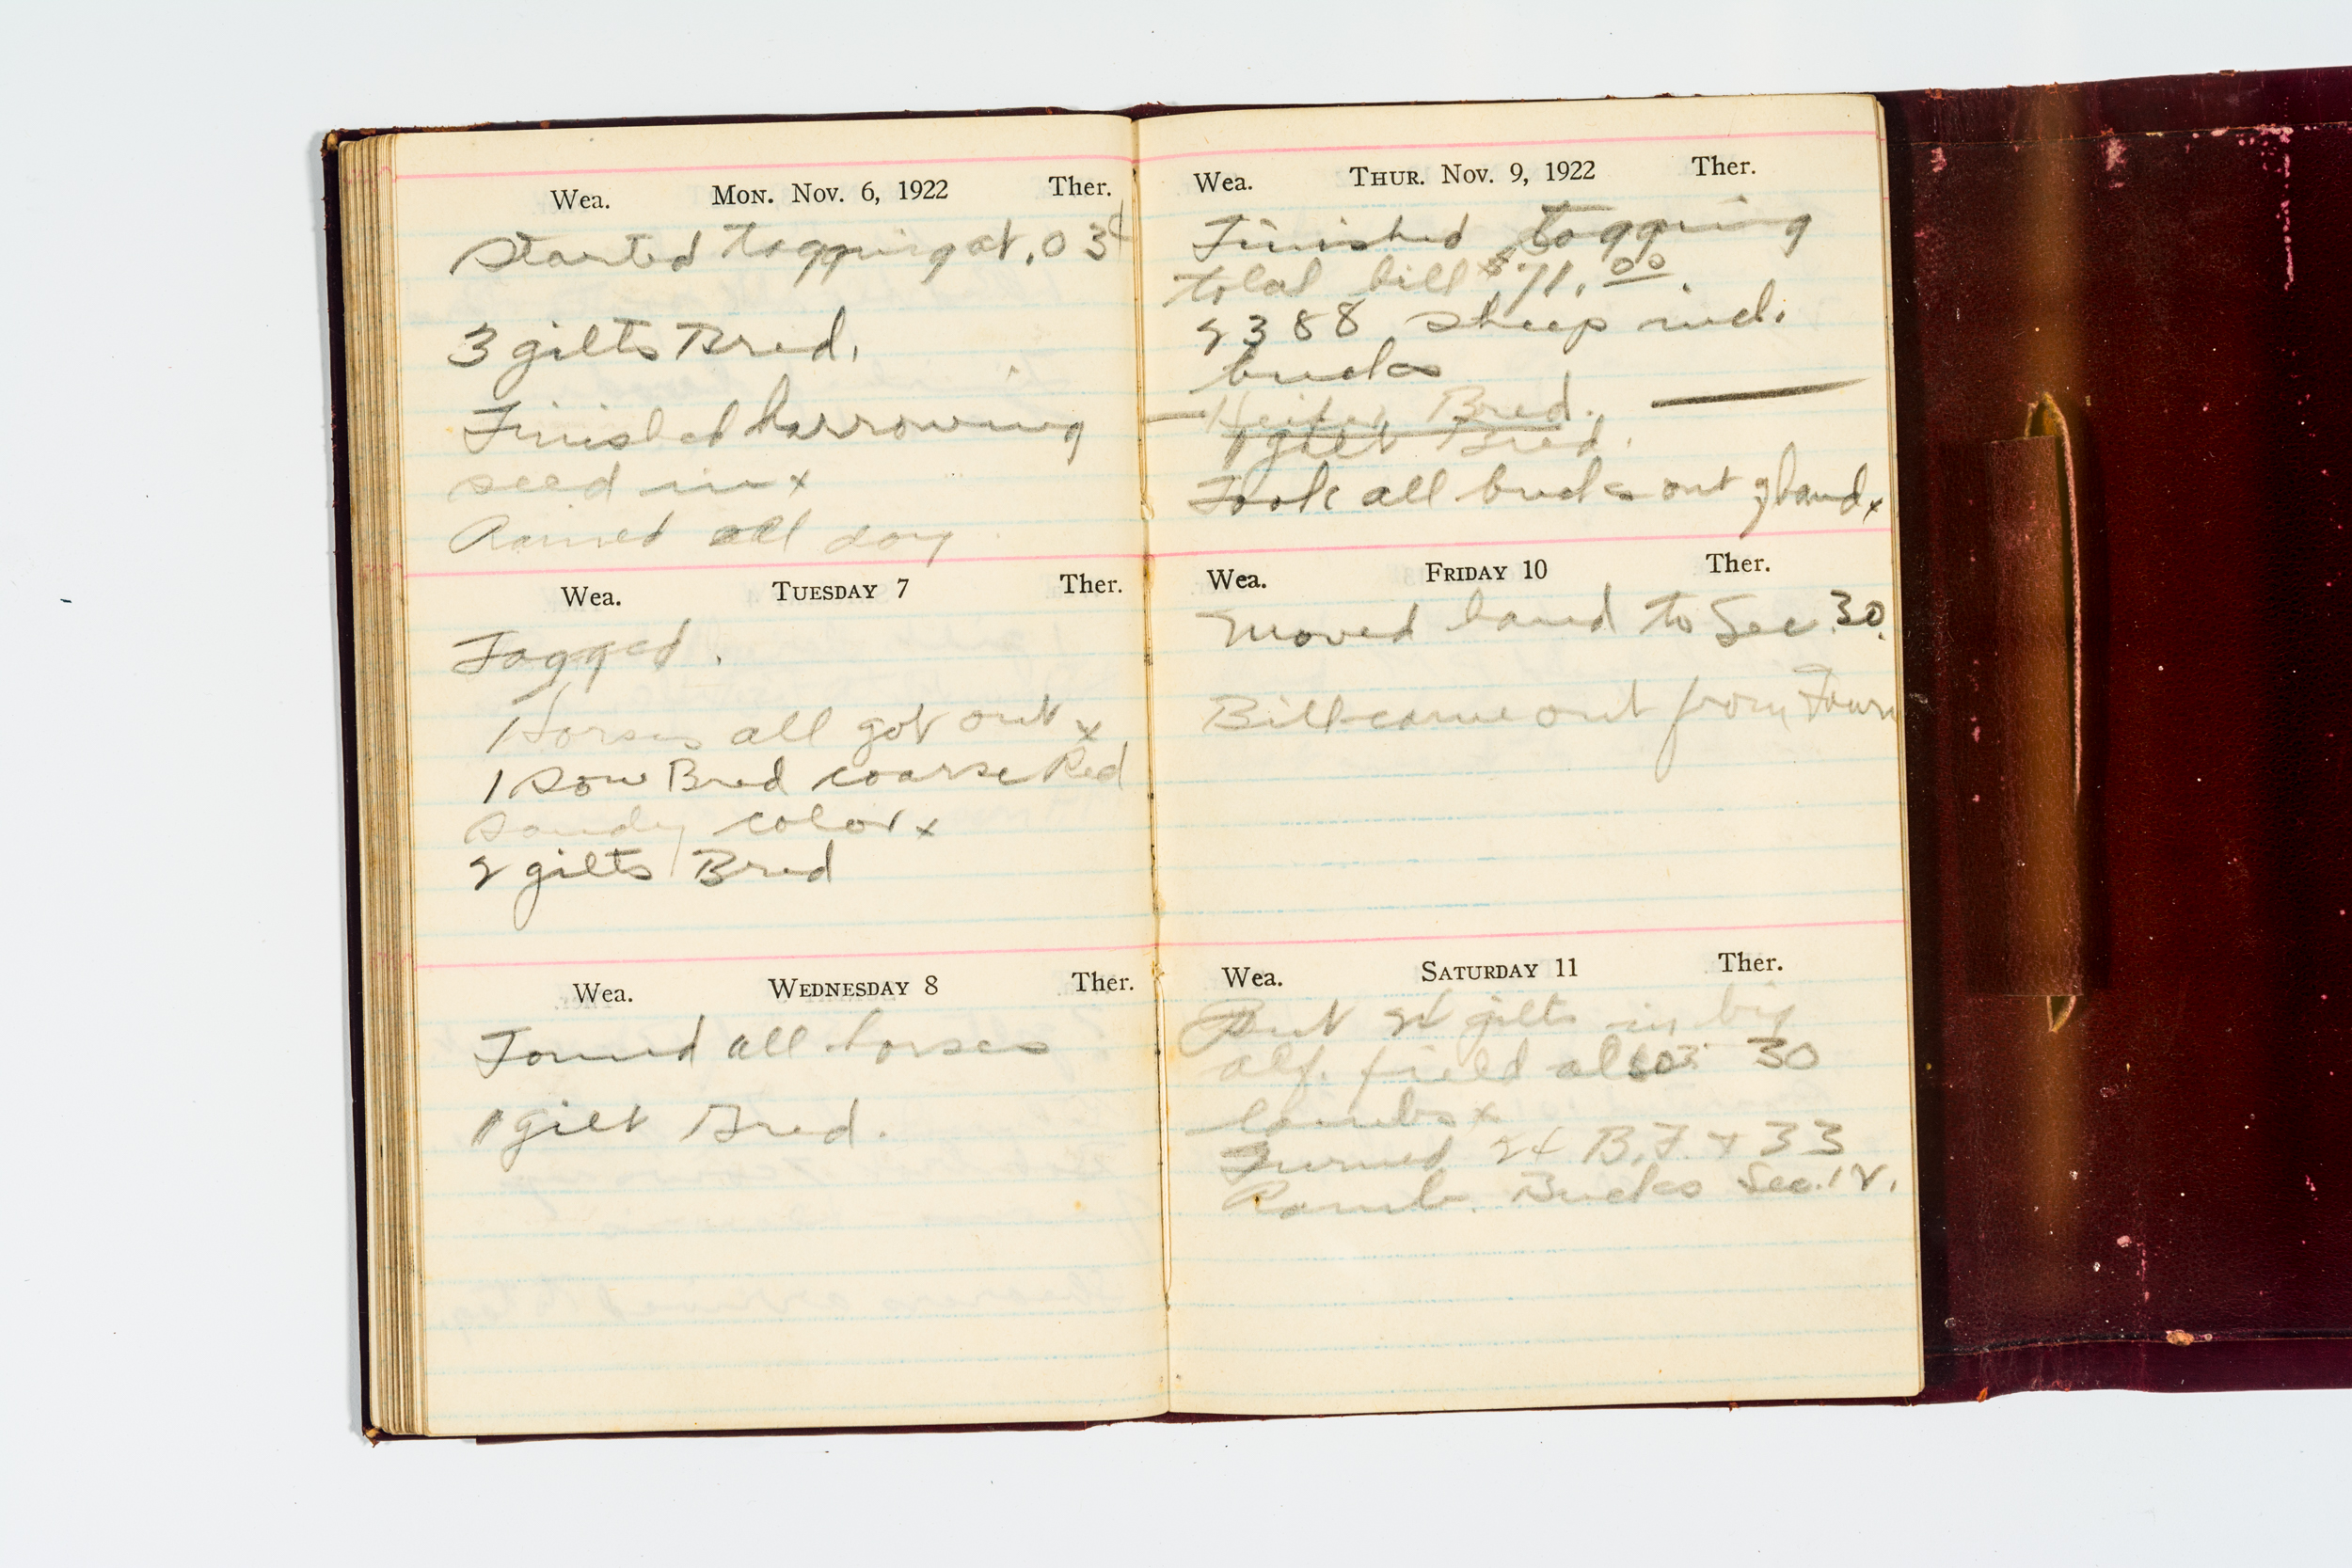 Wea. Mon. Nov. 6, 1922 Ther.
Started tagging at .03¢
3 gilts Bred.
Finished harrowing
seed in x
Rained all day
Wea. Tuesday 7 Ther.
Tagged.
Horses all got out x
1 Sow Bred coarse Red
Sandy color x
2 gilts Bred
Wea. Wednesday 8 Ther.
Found all horses
1 gilt Bred.
Wea. Thur. Nov. 9, 1922 Ther.
Finished tagging
total bill $71.00.
2388 sheep incl.
bucks
— Heifer Bred. —
1 gilt Bred.
Took all bucks out of band x
Wea. Friday 10 Ther.
Moved band to Sec. 30.
Bill came out from Town
Wea. Saturday 11 Ther.
Put 24 gilts in big
alf. field also 30
lambs x
Turned 24 B.F. + 33
Ramb. Bucks Sec. 12.